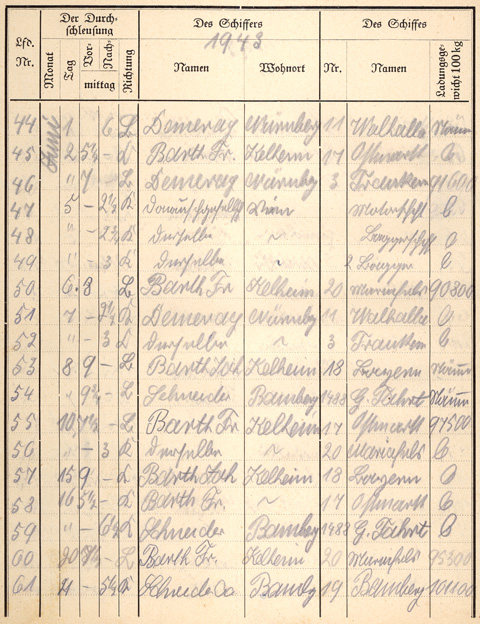 Lfd. Nr. Der Durchschleusung Des Schiffers Des Schiffes
1943
Monat Tag Vor- Nach- mittag Richtung Namen Wohnort Nr. Namen Ladungsgewicht 100 kg
44 Juni 1 6 L Demeray Nürnberg 11 Walhalla
45 2 5½ - K Barth Fr. Kelheim 17 Ostmark 0
46 " 7 - L Demeray Nürnbg 3 Franken 91600
47 5 - 2½ K Wien Motorschff 0
48 " - 2½ K derselbe ~ Baggerschff 0
49 " - 3 K derselbe " 2 Bagger 0
50 6 8 L Barth Fr Kelheim 20 Mariafels 90800
51 7 - K Demeray Nürnbg 11 Walhalla 0
52 " - 3 K derselbe ~ 3 Franken 0
53 8 9 - L Barth Joh Kelheim 18 Bayern
54 " - L Schneider Bamberg 1488 G. Fährt
55 10 7½ - L Barth Fr Kelheim 17 Ostmark 97500
56 " - 3 K derselbe ~ 20 Mariafels 0
57 15 9 - K Barth Joh Kelheim 18 Bayern 0
58 16 5½ - K Barth Fr. ~ 17 Ostmark 0
59 " - 6½ K Schneider Bamberg 1488 G. Fährt 0
60 20 7½ - L Barth Fr. Kelheim 20 Mariafels 95300
61 - 5½ K Bambg 19 Bamberg 101100